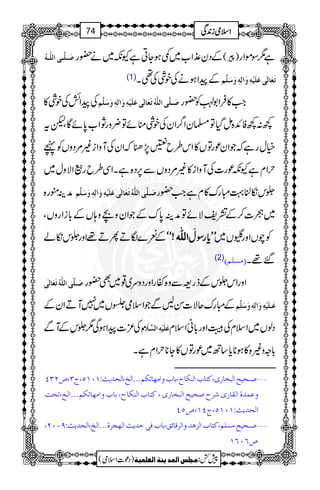 74 اسلامی زندگی
ہے مگر سوموار (پیر) کے دن عذاب میں کمی ہو جاتی ہے کیونکہ میں نے حضور صَلَّی اللہُ
تَعَالٰی عَلَیْہِ وَاٰلِہٖ وَسَلَّم کے پیدا ہونے کی خوشی کی تھی۔ (1)
جب کافر ابولہب کو حضور صَلَّی اللہُ تَعَالٰی عَلَیْہِ وَاٰلِہٖ وَسَلَّم کی پیدائش کی خوشی کا
کچھ نہ کچھ فائدہ مل گیا تو مسلمان اگر ان کی خوشی منائے تو ضرور ثواب پائے گا لیکن یہ
خیال رہے کہ جوان عورتوں کا اس طرح نعتیں پڑھنا کہ ان کی آواز غیر مردوں کو پہنچے
حرام ہے کیونکہ عورت کی آواز کا غیر مردوں سے پردہ ہے۔ اسی طرح ربیع الاول میں
جلوس نکالنا بہت مبارک کام ہے جب حضور صَلَّی اللہُ تَعَالٰی عَلَیْہِ وَاٰلِہٖ وَسَلَّم مدینہ منورہ
میں ہجرت کر کے تشریف لائے تو مدینہ پاک کے جوان و بچے وہاں کے بازاروں،
کوچوں اور گلیوں میں ’’یارسول اللہ‘‘ کے نعرے لگاتے پھرتے تھے اور جلوس نکالے
گئے تھے۔ (مسلم) (2)
اور اس جلوس کے ذریعہ سے وہ کفار اور دوسری قومیں بھی حضور صَلَّی اللہُ تَعَالٰی
عَلَیْہِ وَاٰلِہٖ وَسَلَّم کے مبارک حالات سن لیں گے جو اسلامی جلسوں میں نہیں آتے ان کے
دلوں میں اسلام کی ہیبت اور بانی اسلام عَلَیْہِ السَّلَام کی عزت پیدا ہوگی مگر جلوس کے آگے
باجہ وغیرہ کا ہونا یا ساتھ میں عورتوں کا جانا حرام ہے۔
صحیح البخاری، کتاب النکاح، باب وامھاتکم...الخ، الحدیث:۵۱۰۱، ج۳، ص۴۳۲
وعمدۃ القاری شرح صحیح البخاری، کتاب النکاح، باب وامھاتکم...الخ، تحت
الحدیث:۵۱۰۱، ج۱۴، ص۴۵
صحیح مسلم، کتاب الزھد والرقائق، باب فی حدیث الھجرۃ...الخ، الحدیث:۲۰۰۹،
ص۱۶۰۶
پیش کش: مجلس المدینۃ العلمیۃ (دعوتِ اسلامی)